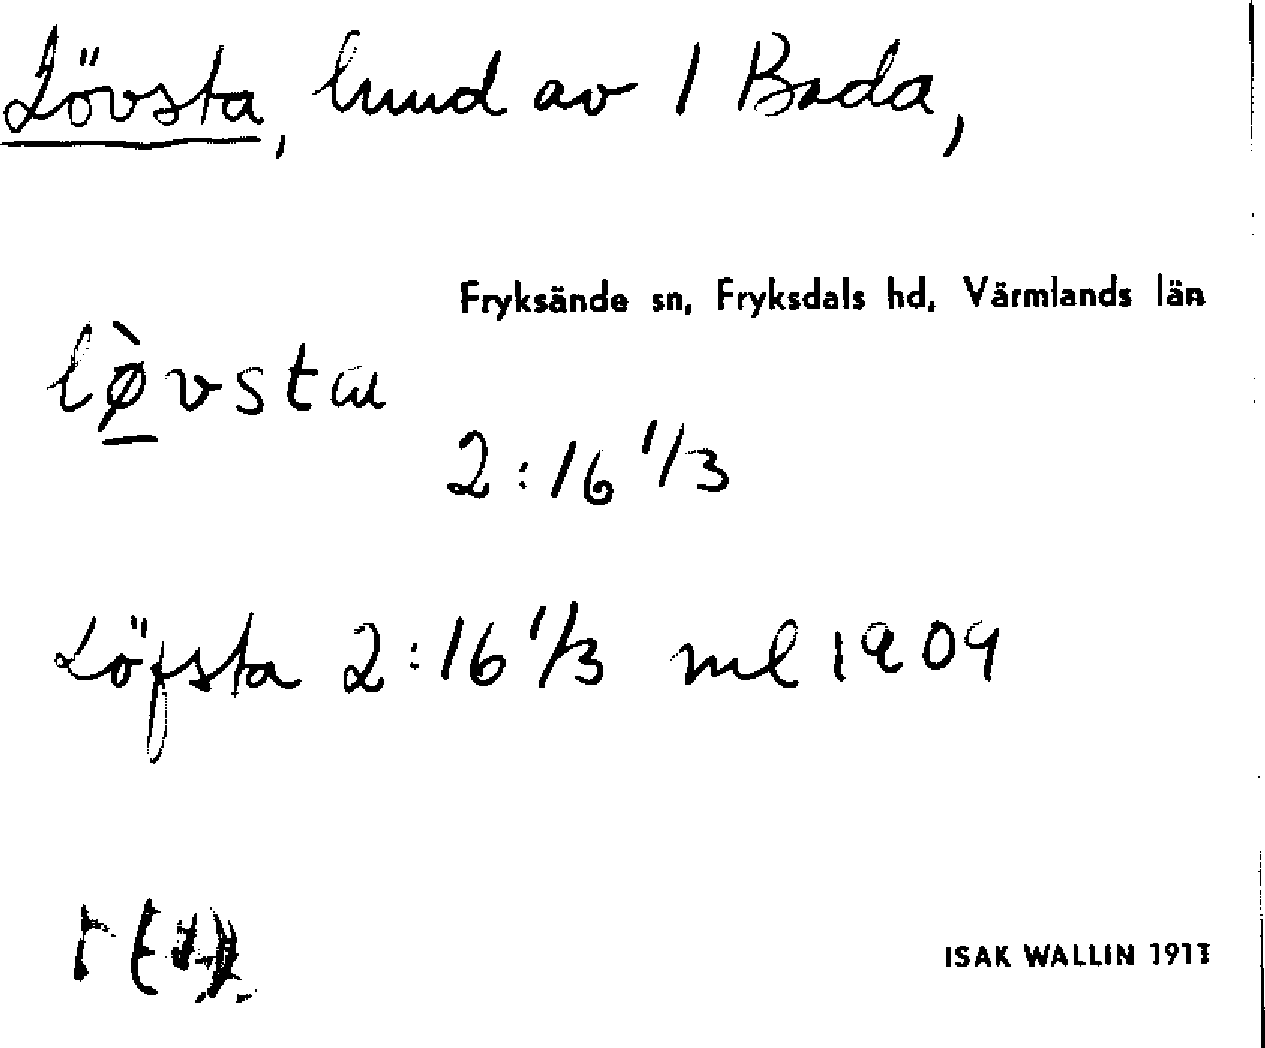 Lövsta, lund av 1 Bada,
Fryksände sn, Fryksdals hd, Värmlands län
lø̀vsta
2:16 1/3
Löfsta 2:16 1/3 ml 1909
ISAK WALLIN 1911